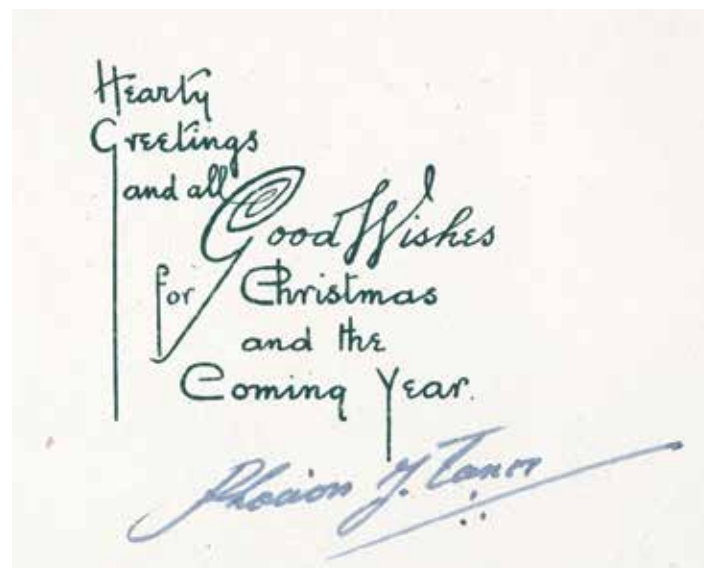 Hearty
Greetings
and all
Good Wishes
for Christmas
and the
Coming Year.
Phocion J. Tanos